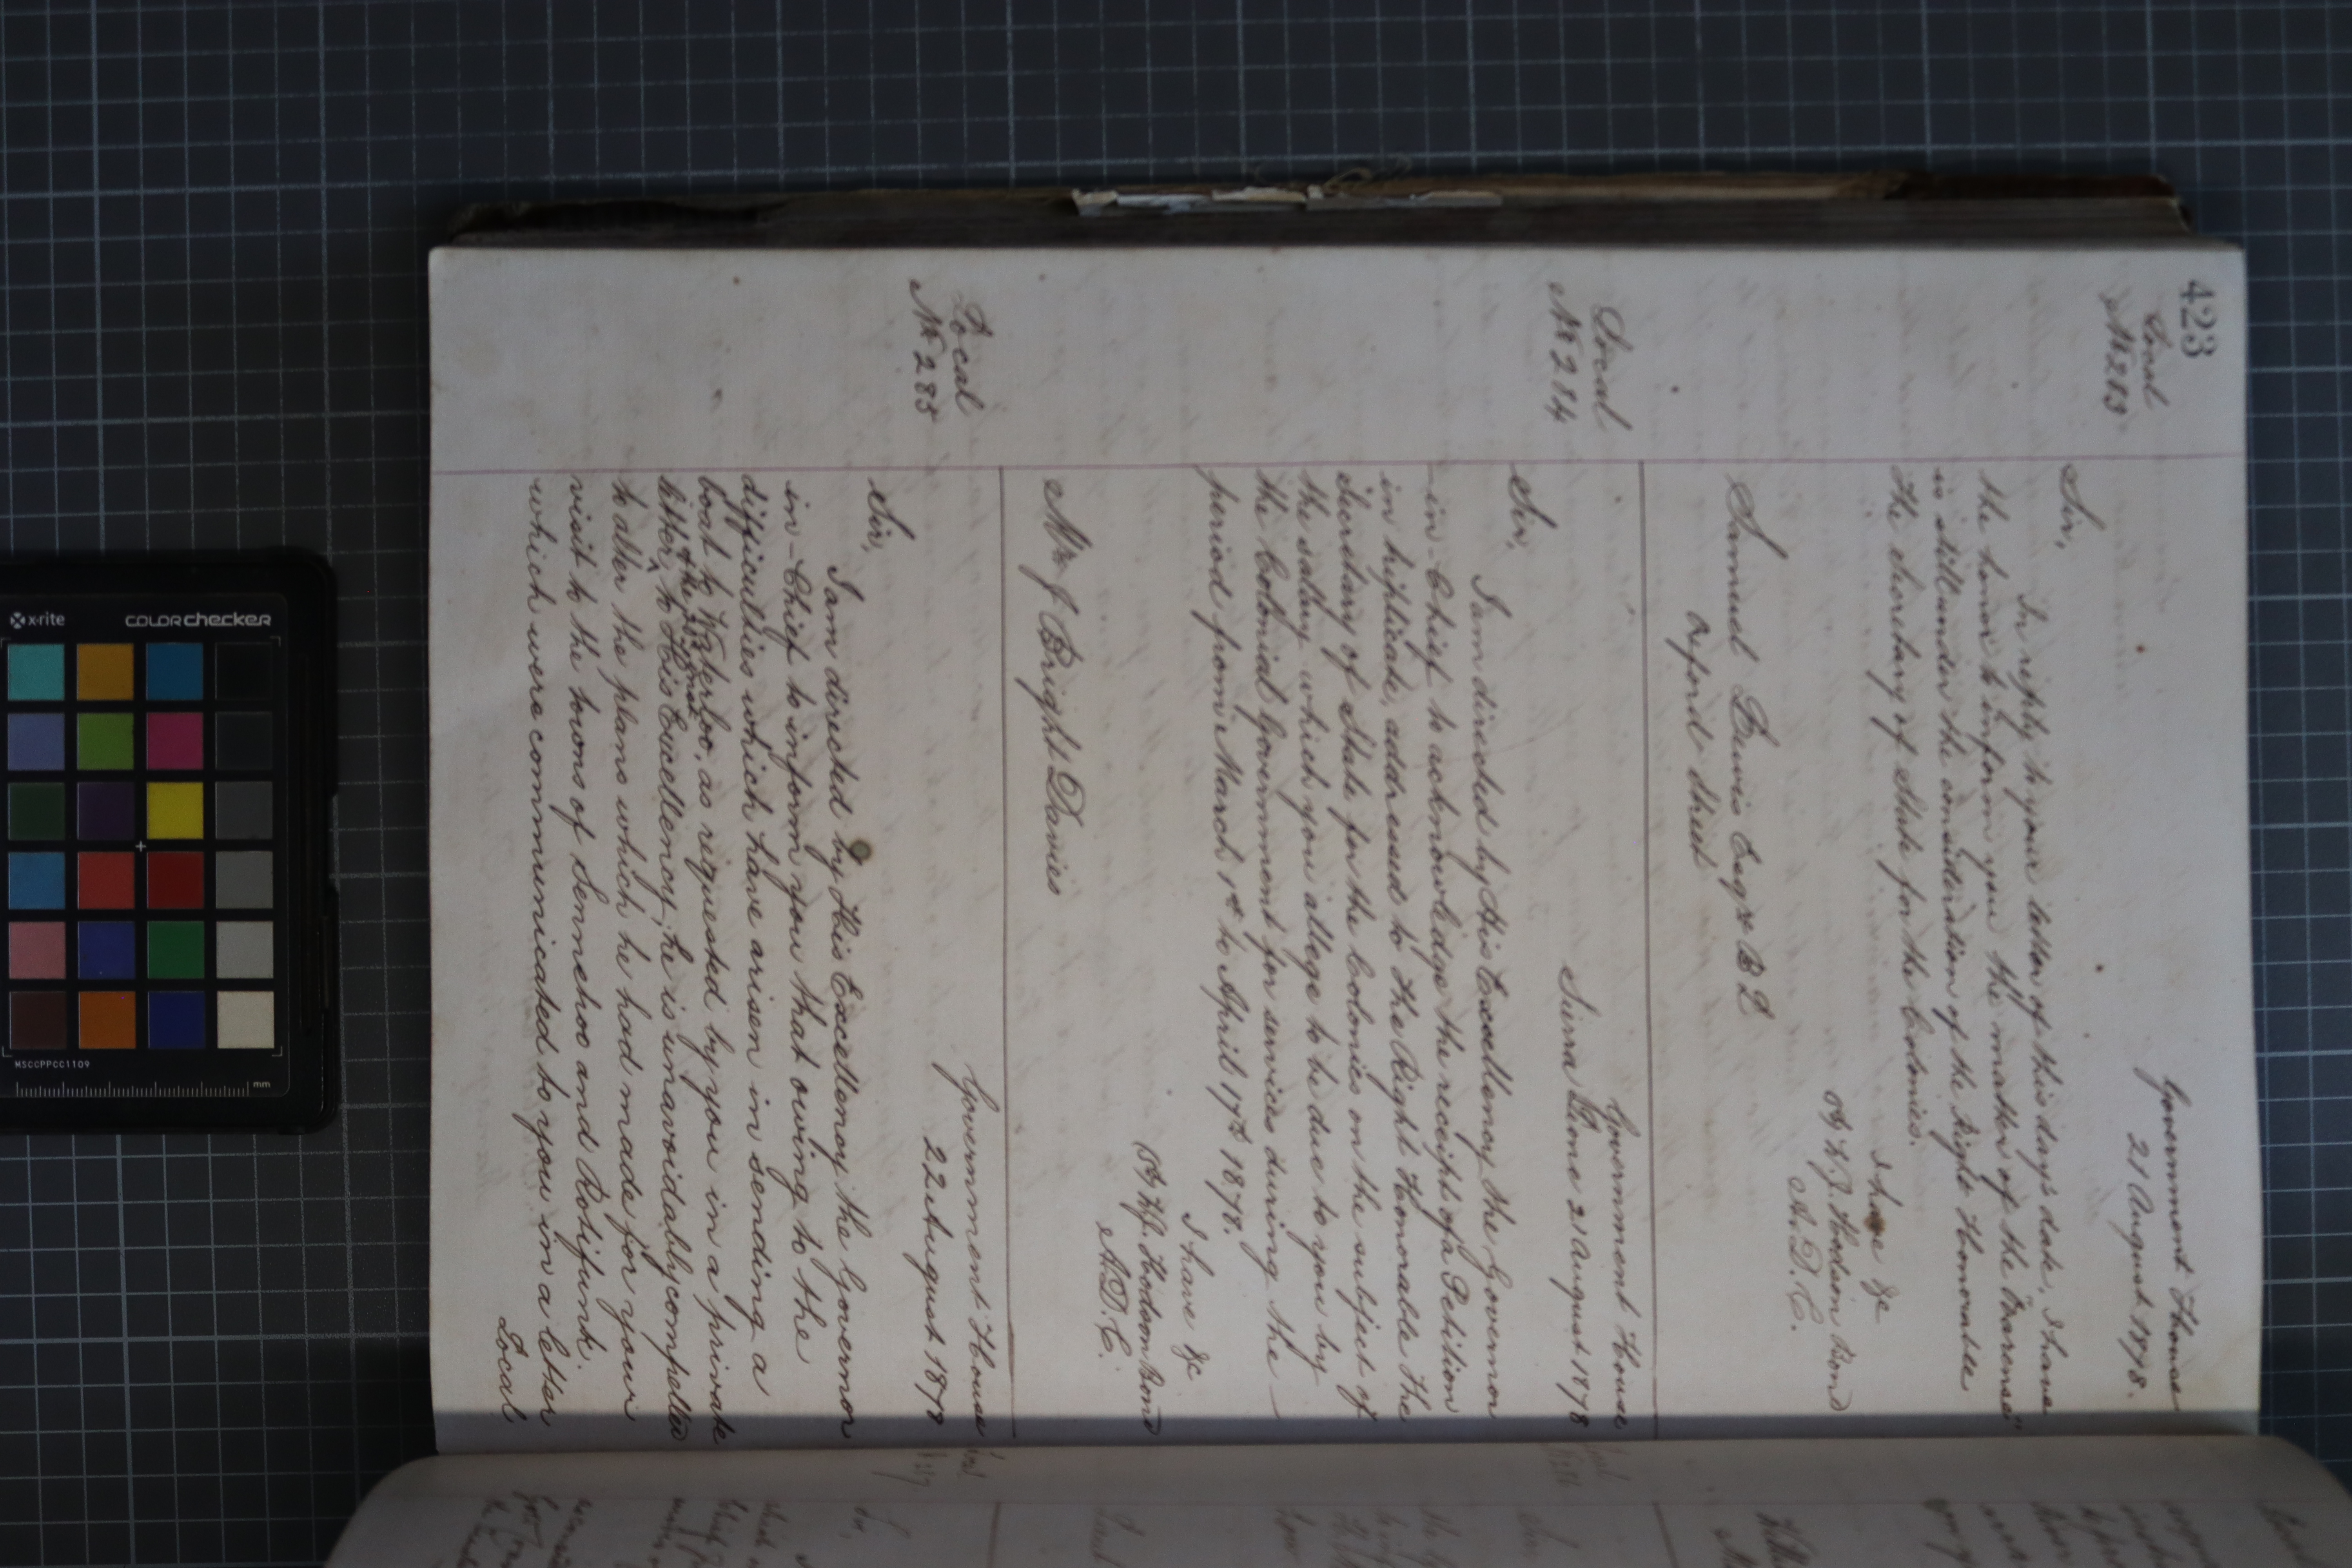 423
Local
No 283
Government House
21 August 1878.
Sir,
In reply to your letter of this day's date, I have
the honor to inform you the matter of the
is still under the consideration of the Right Honorable
the Secretary of State for the Colonies.
I have &c
W. J. Hodson Bond
A.D.C.
Samuel Lewis Esqre B L
Oxford Street
Local
No 284
Government House
Sierra Leone 21 August 1878
Sir,
I am directed by His Excellency the Governor
in-Chief to acknowledge the receipt of a Petition
in triplicate, addressed to the Right Honorable the
Secretary of State for the Colonies on the subject of
the salary which you allege to be due to you by
the Colonial Government for services during the
period from March 1st to April 17th 1878.
I have &c
Hodson Bond
A.D.C.
Mr J Bright Davies
Local
No 285
Government House
22 August 1878
Sir,
I am directed by His Excellency the Governor
in-Chief to inform you that owing to the
difficulties which have arisen in sending a
boat to Waterloo, as requested by you in a private
letter, to His Excellency, he is unavoidably compelled
to alter the plans which he had made for your
visit to the towns of Sennehoo and Rotifunk.
which were communicated to you in a letter
Local
x-rite
COLORchecker
MSCCPPCC1109
mm